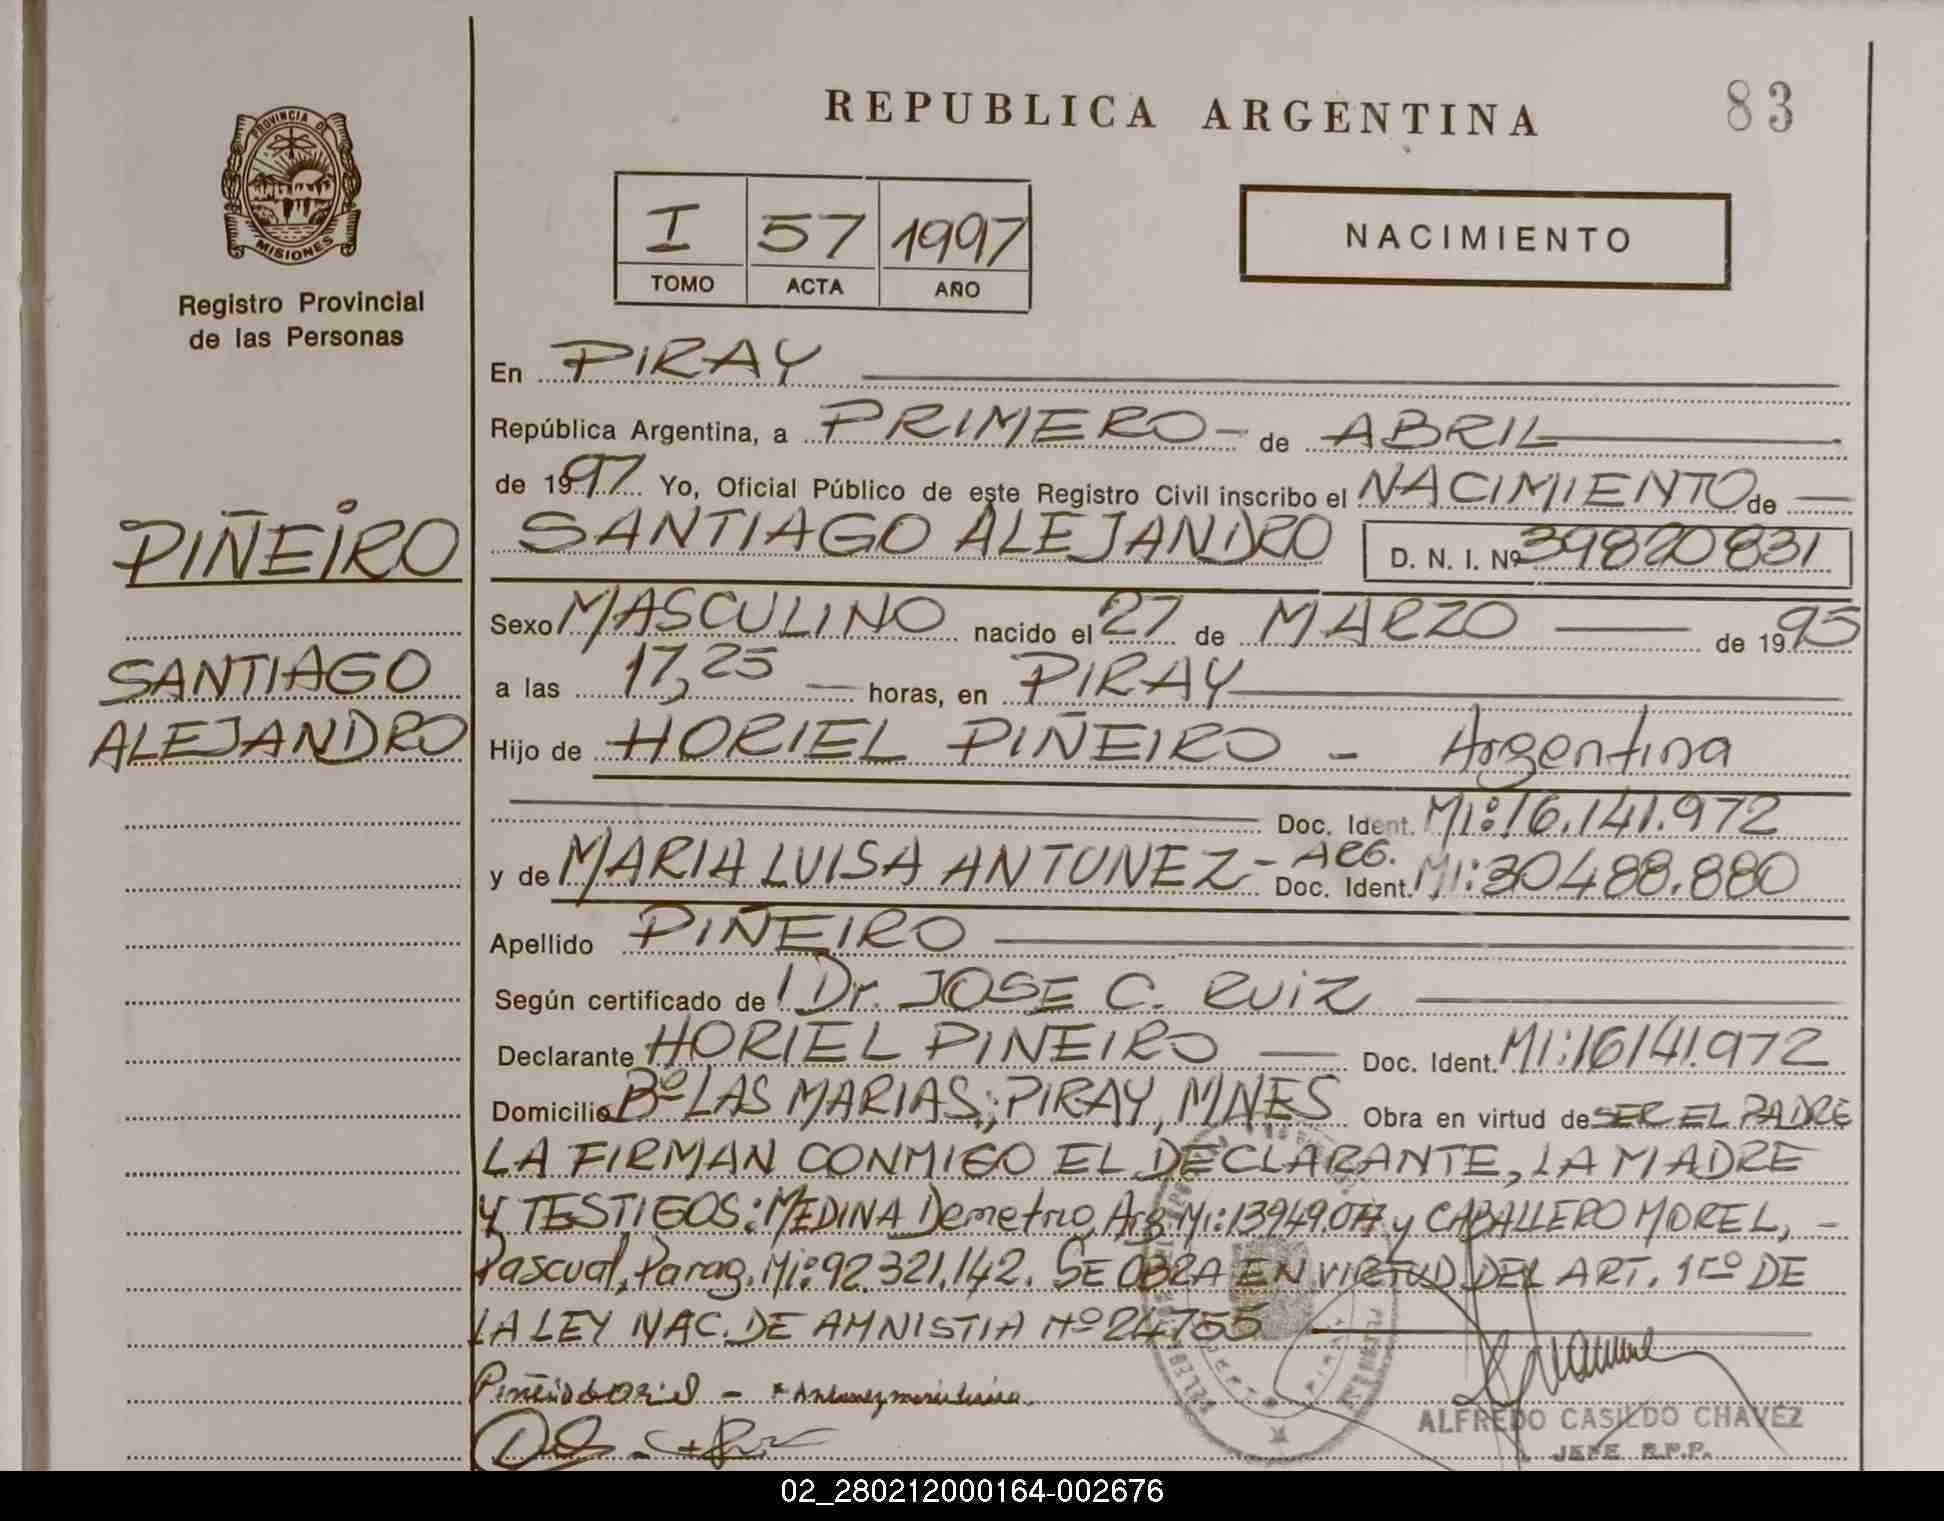 REPUBLICA ARGENTINA
83
PROVINCIA DE
MISIONES
Registro Provincial
de las Personas
I 57 1997
TOMO ACTA AÑO
NACIMIENTO
PIÑEIRO
SANTIAGO
ALEJANDRO
En PIRAY
República Argentina, a PRIMERO - de ABRIL
de 1997 Yo, Oficial Público de este Registro Civil inscribo el NACIMIENTO de
SANTIAGO ALEJANDRO D. N. I. Nº 39820831
Sexo MASCULINO nacido el 27 de MARZO de 1995
a las 17,25 horas, en PIRAY
Hijo de HORIEL PIÑEIRO - Argentina
Doc. Ident. MI:16.141.972
y de MARIA LUISA ANTUNEZ - ARG. Doc. Ident. MI:30488.880
Apellido PIÑEIRO
Según certificado de Dr. JOSE C. RUIZ
Declarante HORIEL PINEIRO Doc. Ident. MI:16141.972
Domicilio Bº LAS MARIAS; PIRAY, MNES Obra en virtud de SER EL PADRE
LA FIRMAN CONMIGO EL DECLARANTE, LA MADRE
Y TESTIGOS: MEDINA Demetrio, Arg. Mi: y CABALLERO MOREL, -
Pascual, Parag. Mi:92.321.142. SE OBRA EN VIRTUD DEL ART. 1rº DE
LA LEY NAC. DE AMNISTIA Nº 24755
ALFREDO CASILDO CHAVEZ
JEFE R.P.P.
02_280212000164-002676